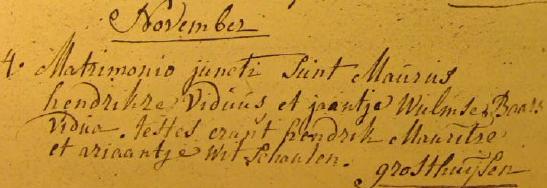 November
4. Matrimonio juncti sunt Maurus
hendrikze Viduus et jaantje Wulmse Baars
Vidua. testes erant hendrik Mauritze
et ariaantje Witschoulen.
grosthuijsen